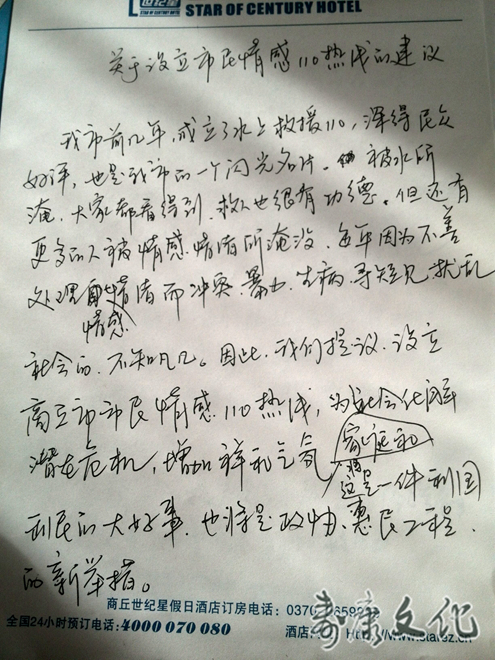 世纪星
STAR OF CENTURY HOTEL
STAR OF CENTURY HOTEL
关于设立市民情感110热线的建议
我市前几年,成立了水上救援110,深得民众
好评,也是我市的一个闪光名片。被水所
淹,大家都看得到,救人也很有功德。但还有
更多的人被情感、情绪所淹没,每年因为不善
处理情绪而冲突、暴力、生病、寻短见、扰乱
情感
社会的,不知凡几。因此,我们提议,设立
商丘市市民情感110热线,为社会化解
潜在危机,增加祥和气氛,
家庭和
这是一件利国
利民的大好事,也将是政府惠民工程
的新举措。
商丘世纪星假日酒店订房电话:0370
全国24小时预订电话:4000 070 080
http://www.starsz.cn
寿康文化